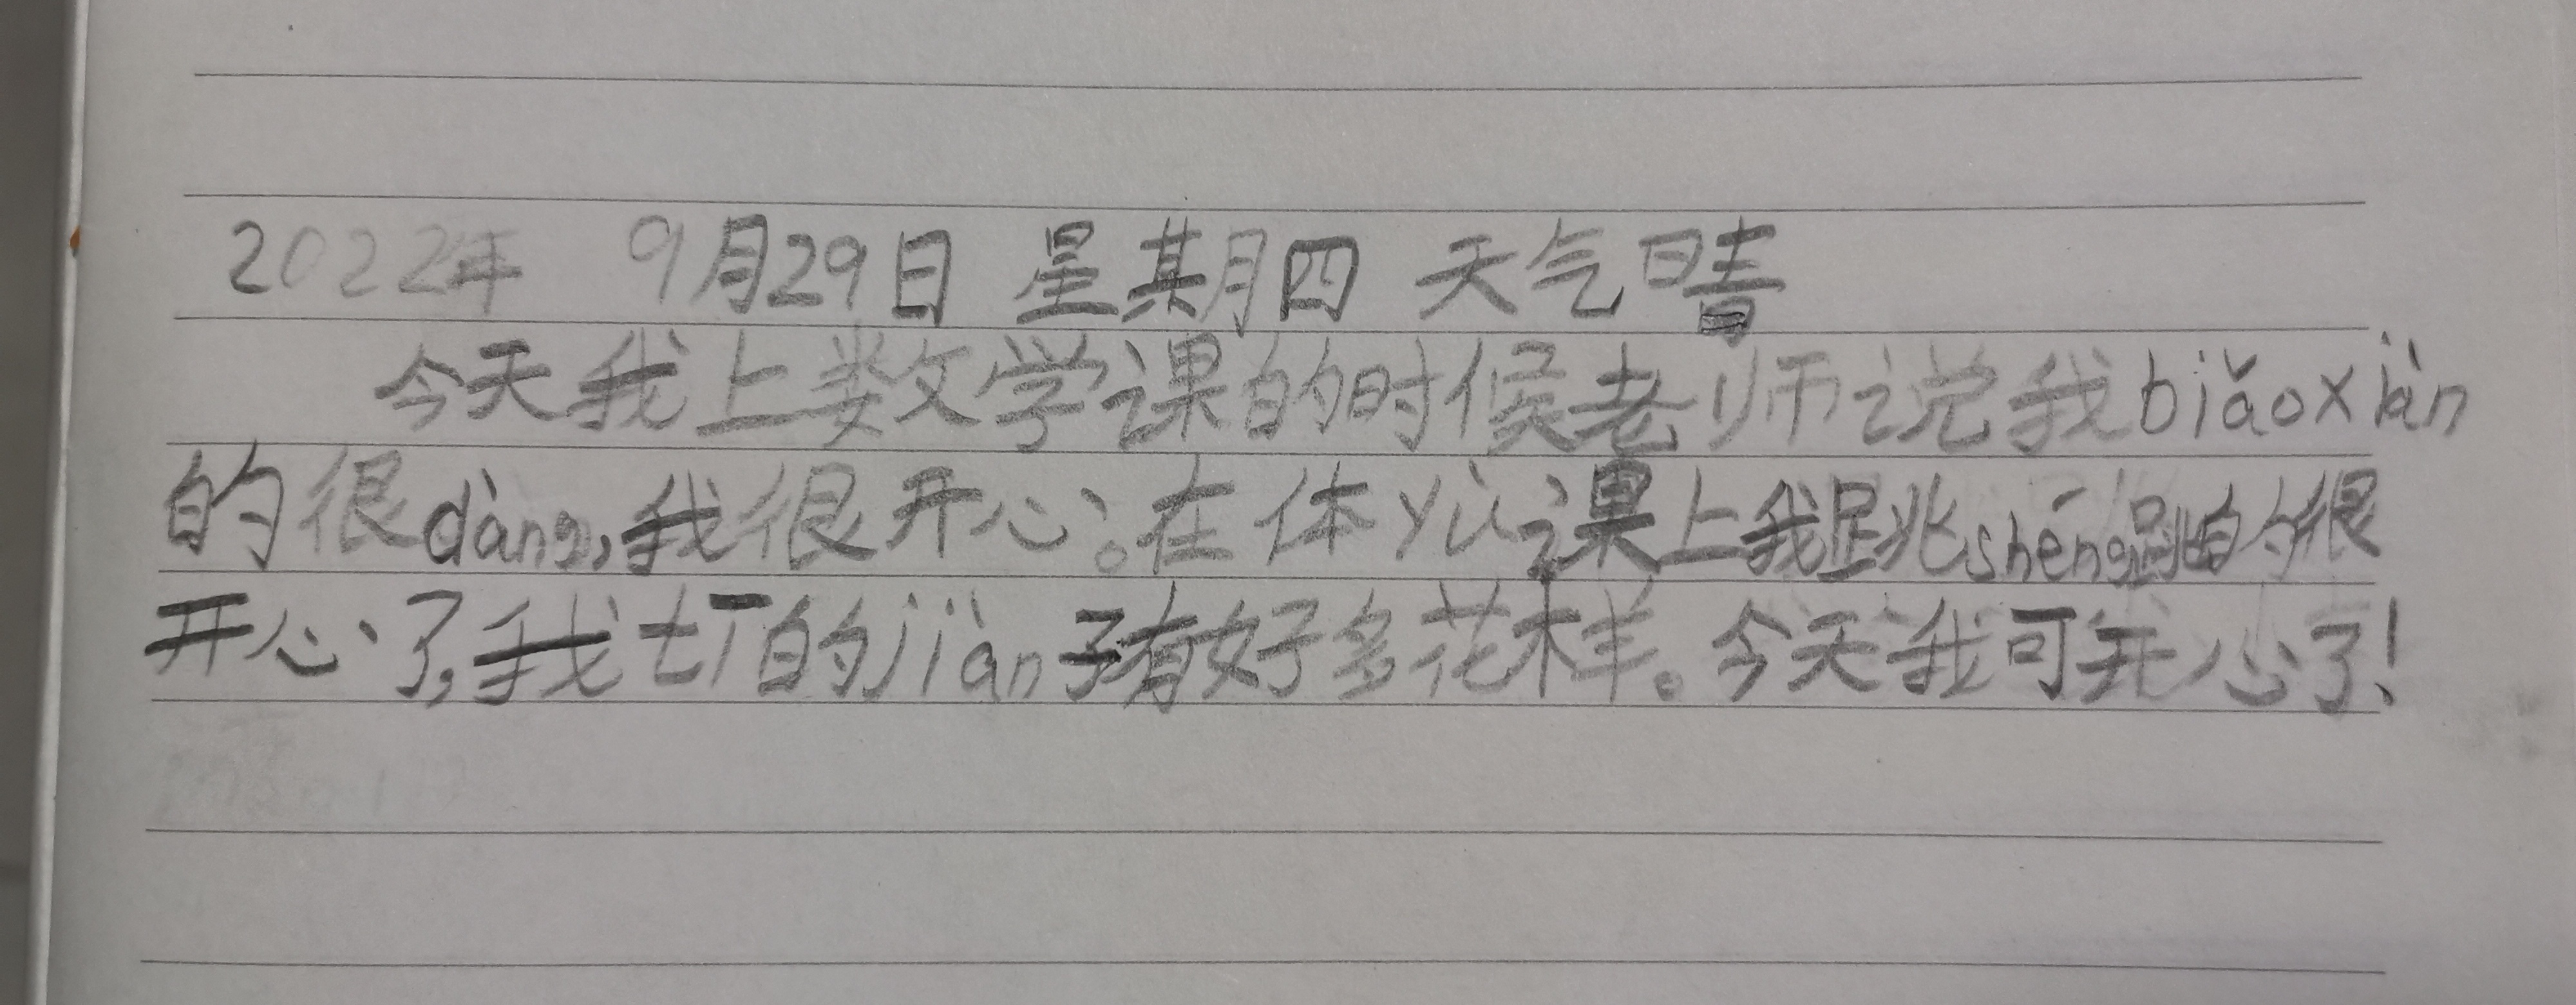 2022年 9月29日 星期四 天气晴
今天我上数学课的时候老师说我biǎoxiàn
的很dàng,我很开心。在体yù课上我跳shéng跳的很
开心了,我打的jiàn子有好多花样。今天我可开心了!